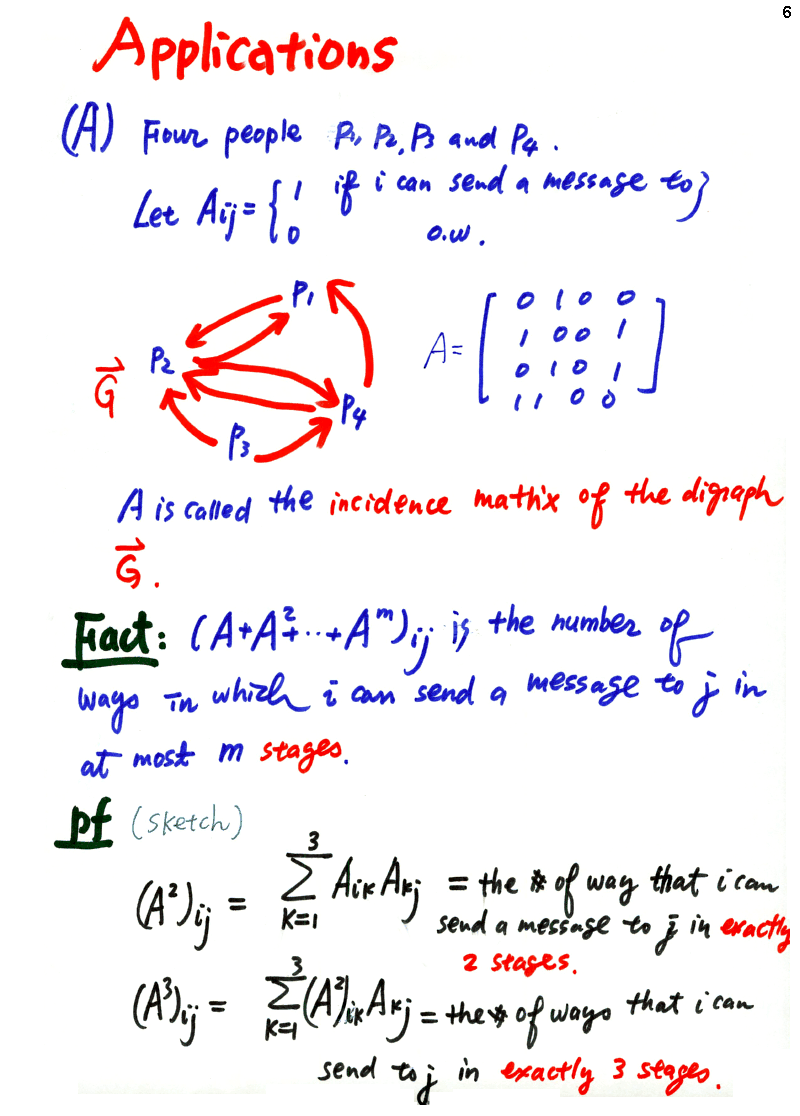 6
Applications
(A) Four people P₁, P₂, P₃ and P₄.
Let Aij = { 1 if i can send a message to j
0 o.w.
P₁
P₂
G⃗
P₄
P₃
A = [ 0 1 0 0
1 0 0 1
0 1 0 1
1 1 0 0 ]
A is called the incidence matrix of the digraph
G⃗.
Fact: (A+A²+...+Aᵐ)ij is the number of
ways in which i can send a message to j in
at most m stages.
pf (sketch)
(A²)ij = ∑_{K=1}^{3} AiK AKj = the # of way that i can
send a message to j in exactly
2 stages.
(A³)ij = ∑_{K=1}^{3} (A²)iK AKj = the # of ways that i can
send to j in exactly 3 stages.